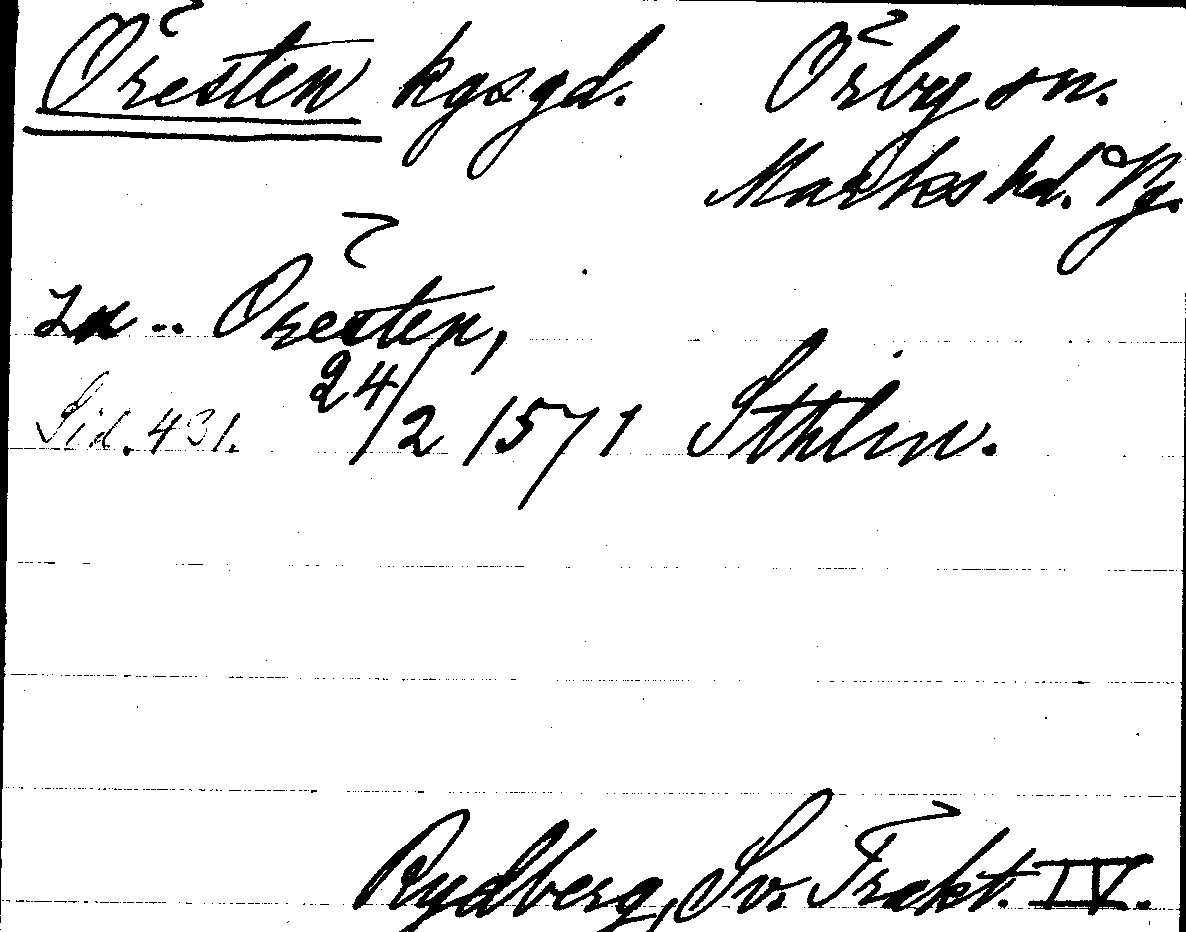 Öresten kgsgd. Örby sn.
Marks hd. Vg.
in .. Öresten,
Sid. 431. 24/2 1571 Sthlm.
Rydberg, Sv. Trakt. IV.